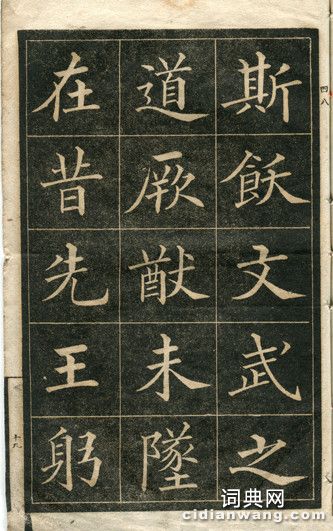 斯飫文武之
道厥猷未墜
在昔先王躬
四八
十九
词典网
cidianwang.com